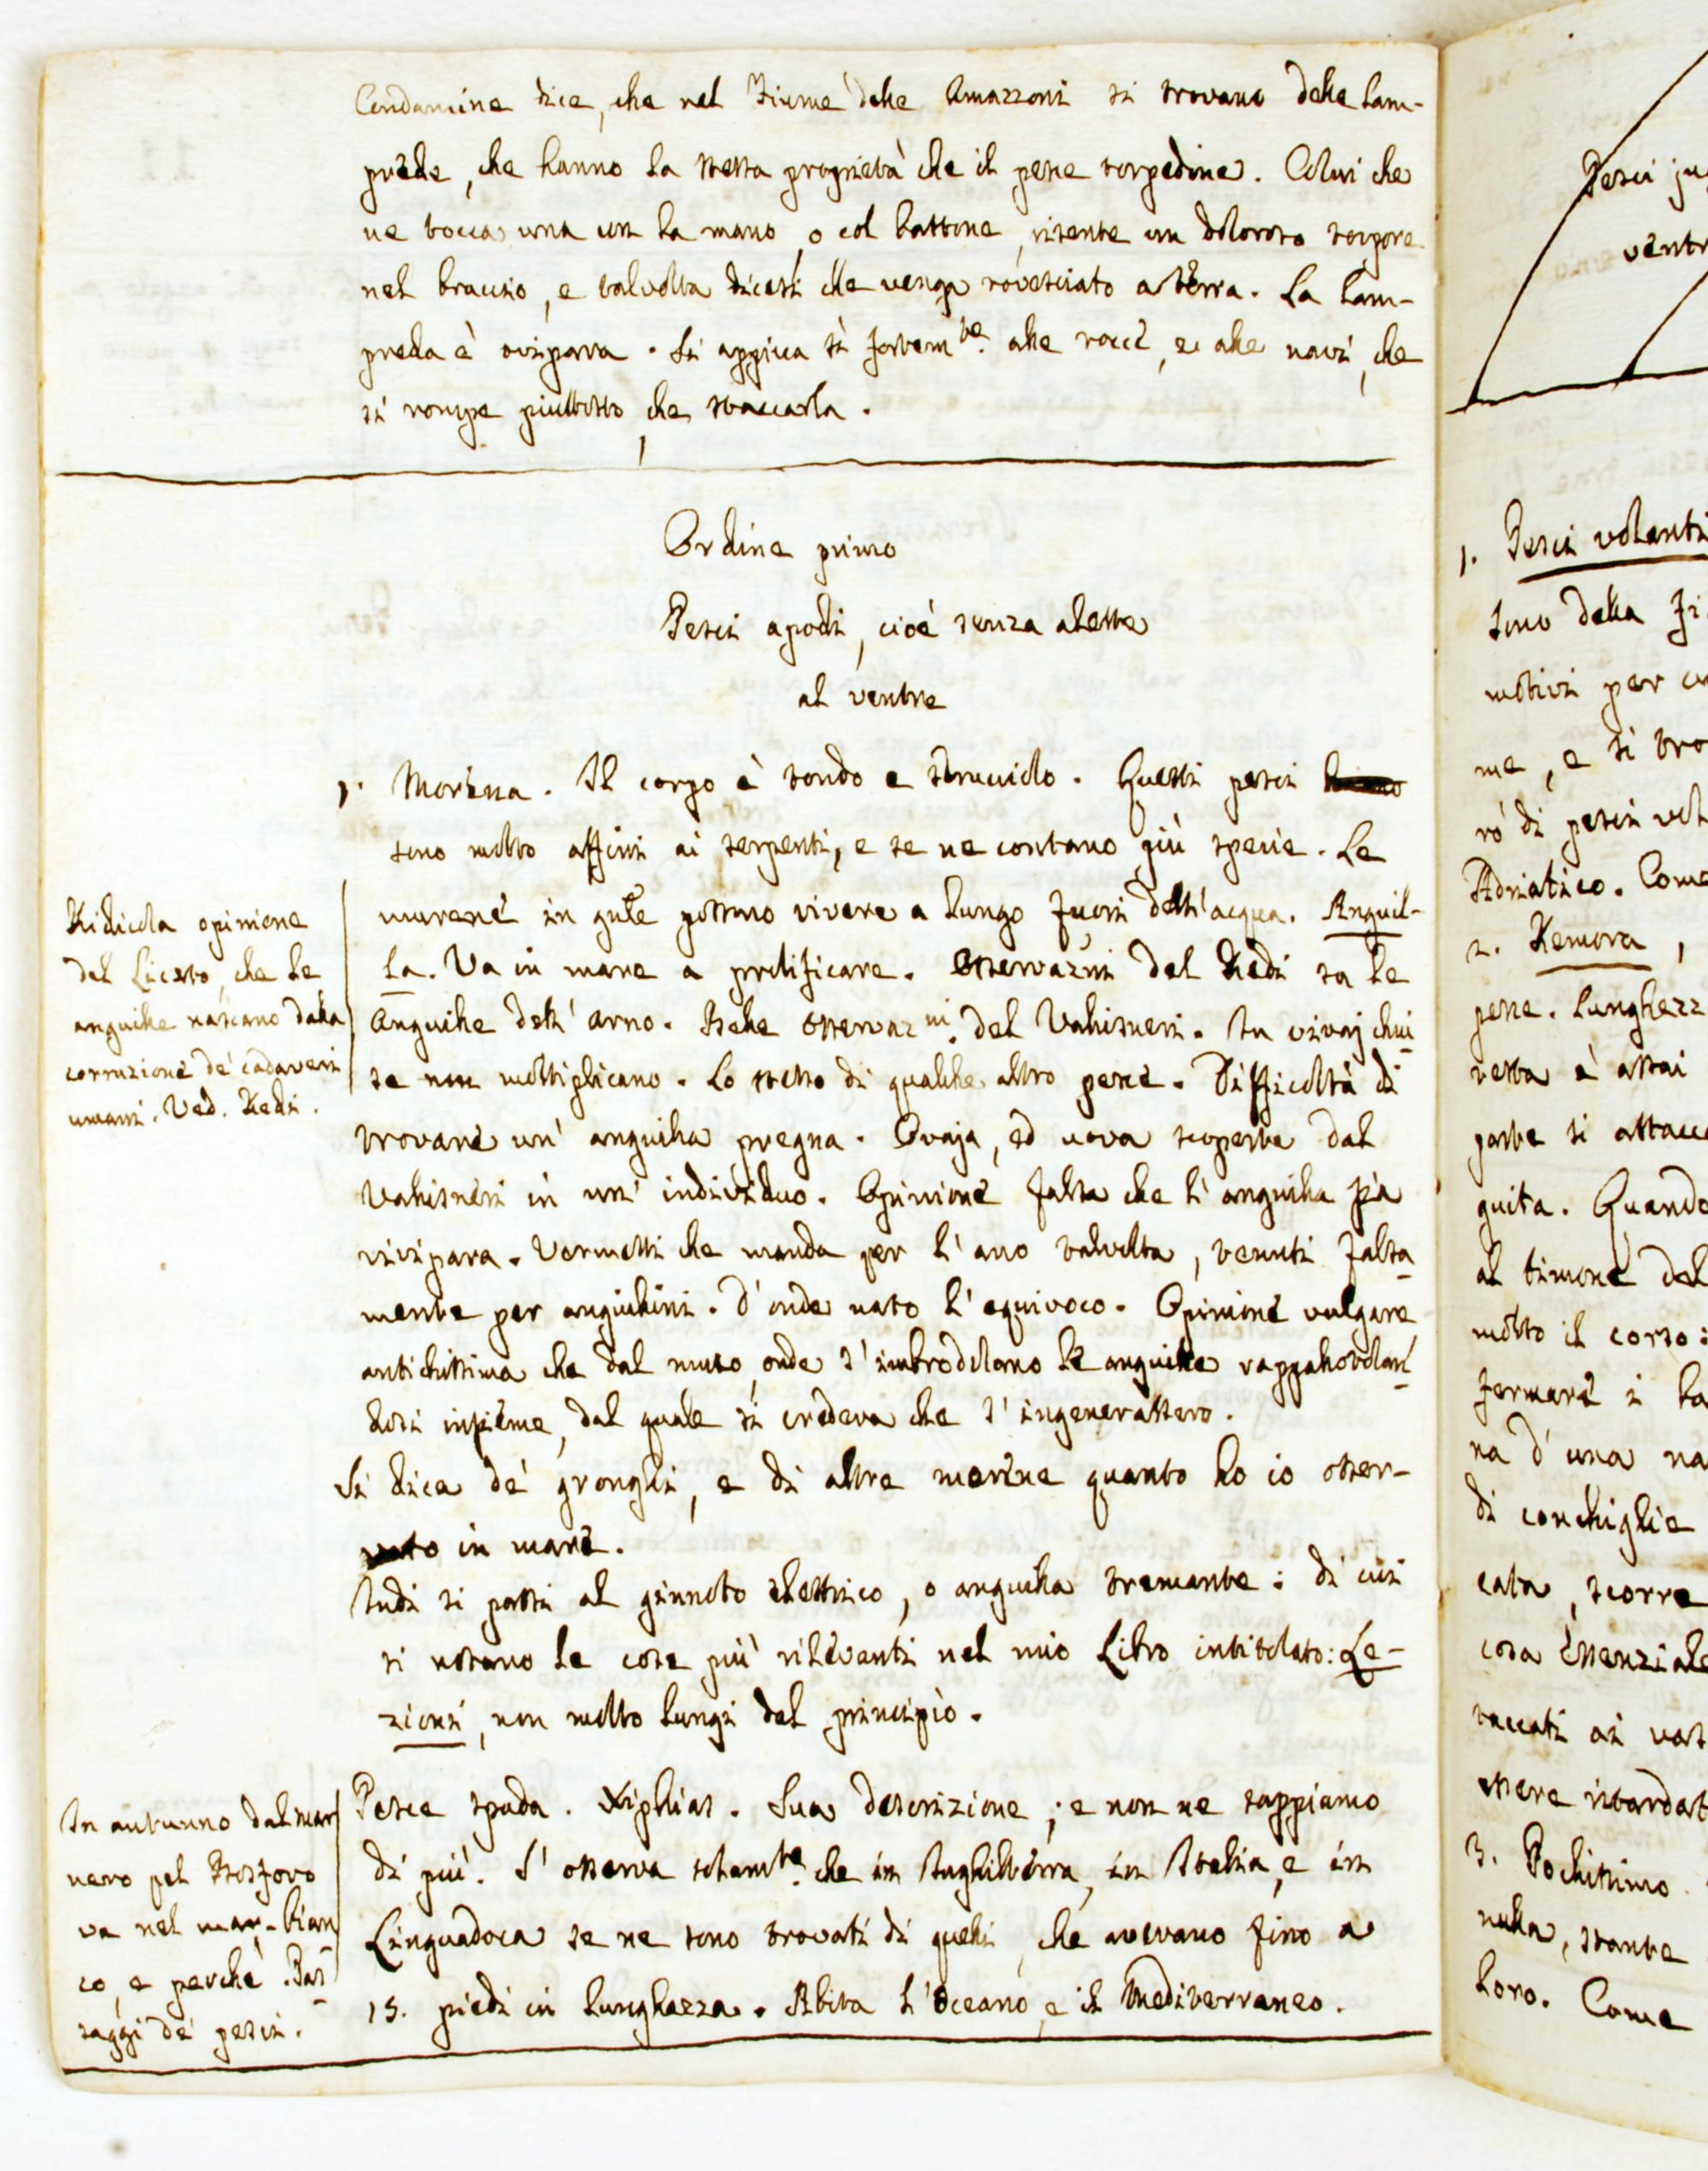 Condamine dice, che nel Fiume delle Amazzoni si trovano delle lam-
prede, che hanno la stessa proprietà che il pesce torpedine. Colui che
ne tocca una con la mano, o col bastone, risente un doloroso torpore
nel braccio, e talvolta dicesi che venga rovesciato a terra. La lam-
preda è ovipara. Si appicca sì fortem.te alle rocce, e alle navi, che
si rompe piuttosto, che staccarla.
Ordine primo
Pesci apodi, cioè senza alette
al ventre
1. Morena. Il corpo è tondo e sdrucciolo. Questi pesci
sono molto affini ai serpenti, e se ne contano più specie. Le
murene in gule possono vivere a lungo fuori dell'acqua. Anguil-
la. Va in mare a prolificare. Osservazni del Redi su le
Anguille dell'Arno. Belle osservaz.ni del Vallisneri. In vivaj chiu
se non moltiplicano. Lo stesso di qualche altro pesce. Difficoltà di
trovare un'anguilla pregna. Ovaja, ed uova scoperte dal
Vallisneri in un'individuo. Opinione falsa che l'anguilla sia
vivipara. Vermetti che manda per l'ano talvolta, tenuti falsa
mente per anguilline. D'onde nato l'equivoco. Opinione vulgare
antichissima che dal muco, onde s'imbrodolano le anguille rappallottolan
dosi insieme, dal quale si credeva che s'ingenerassero.
Si dica de' gronghi, e di altre morene quanto ho io osser-
vato in mare.
Indi si passi al ginnoto elettrico, o anguilla tremante: di cui
si notano le cose più rilevanti nel mio Libro intitolato: Le-
zioni, non molto lungi dal principio.
Pesce spada. Xiphias. Sua descrizione; e non ne sappiamo
di più. S'osserva solam.te che in Inghilterra, in Italia, e in
Linguadoca se ne sono trovati di quelli, che avevano fino a
15. piedi in lunghezza. Abita l'Oceano, e il Mediterraneo.
Ridicola opinione
del Liceto, che le
anguille nascano dalla
corruzione de' cadaveri
umani. Ved. Redi.
In autunno dal mar
nero pel Bosforo
va nel mar bian
co, e perchè. Pas
saggi de' pesci.
Pesci ju
ventr
1. Pesci volanti
sono della fi
motivi per cu
me, e si tro
rò di pesci vol
Adriatico. Come
2. Remora,
pesce. Lunghezz
testa è assai
parte si attacc
guita. Quando
al timone del
molto il corso:
fermare i ba
na d'una na
di conchiglie
cata, scorre
cosa essenziale
taccati ai vas
essere ritardat
3. Pochissimo
nulla, stante
loro. Come